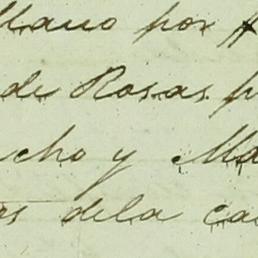 llano por
de Rosas p
cho y Ma
os dela ca